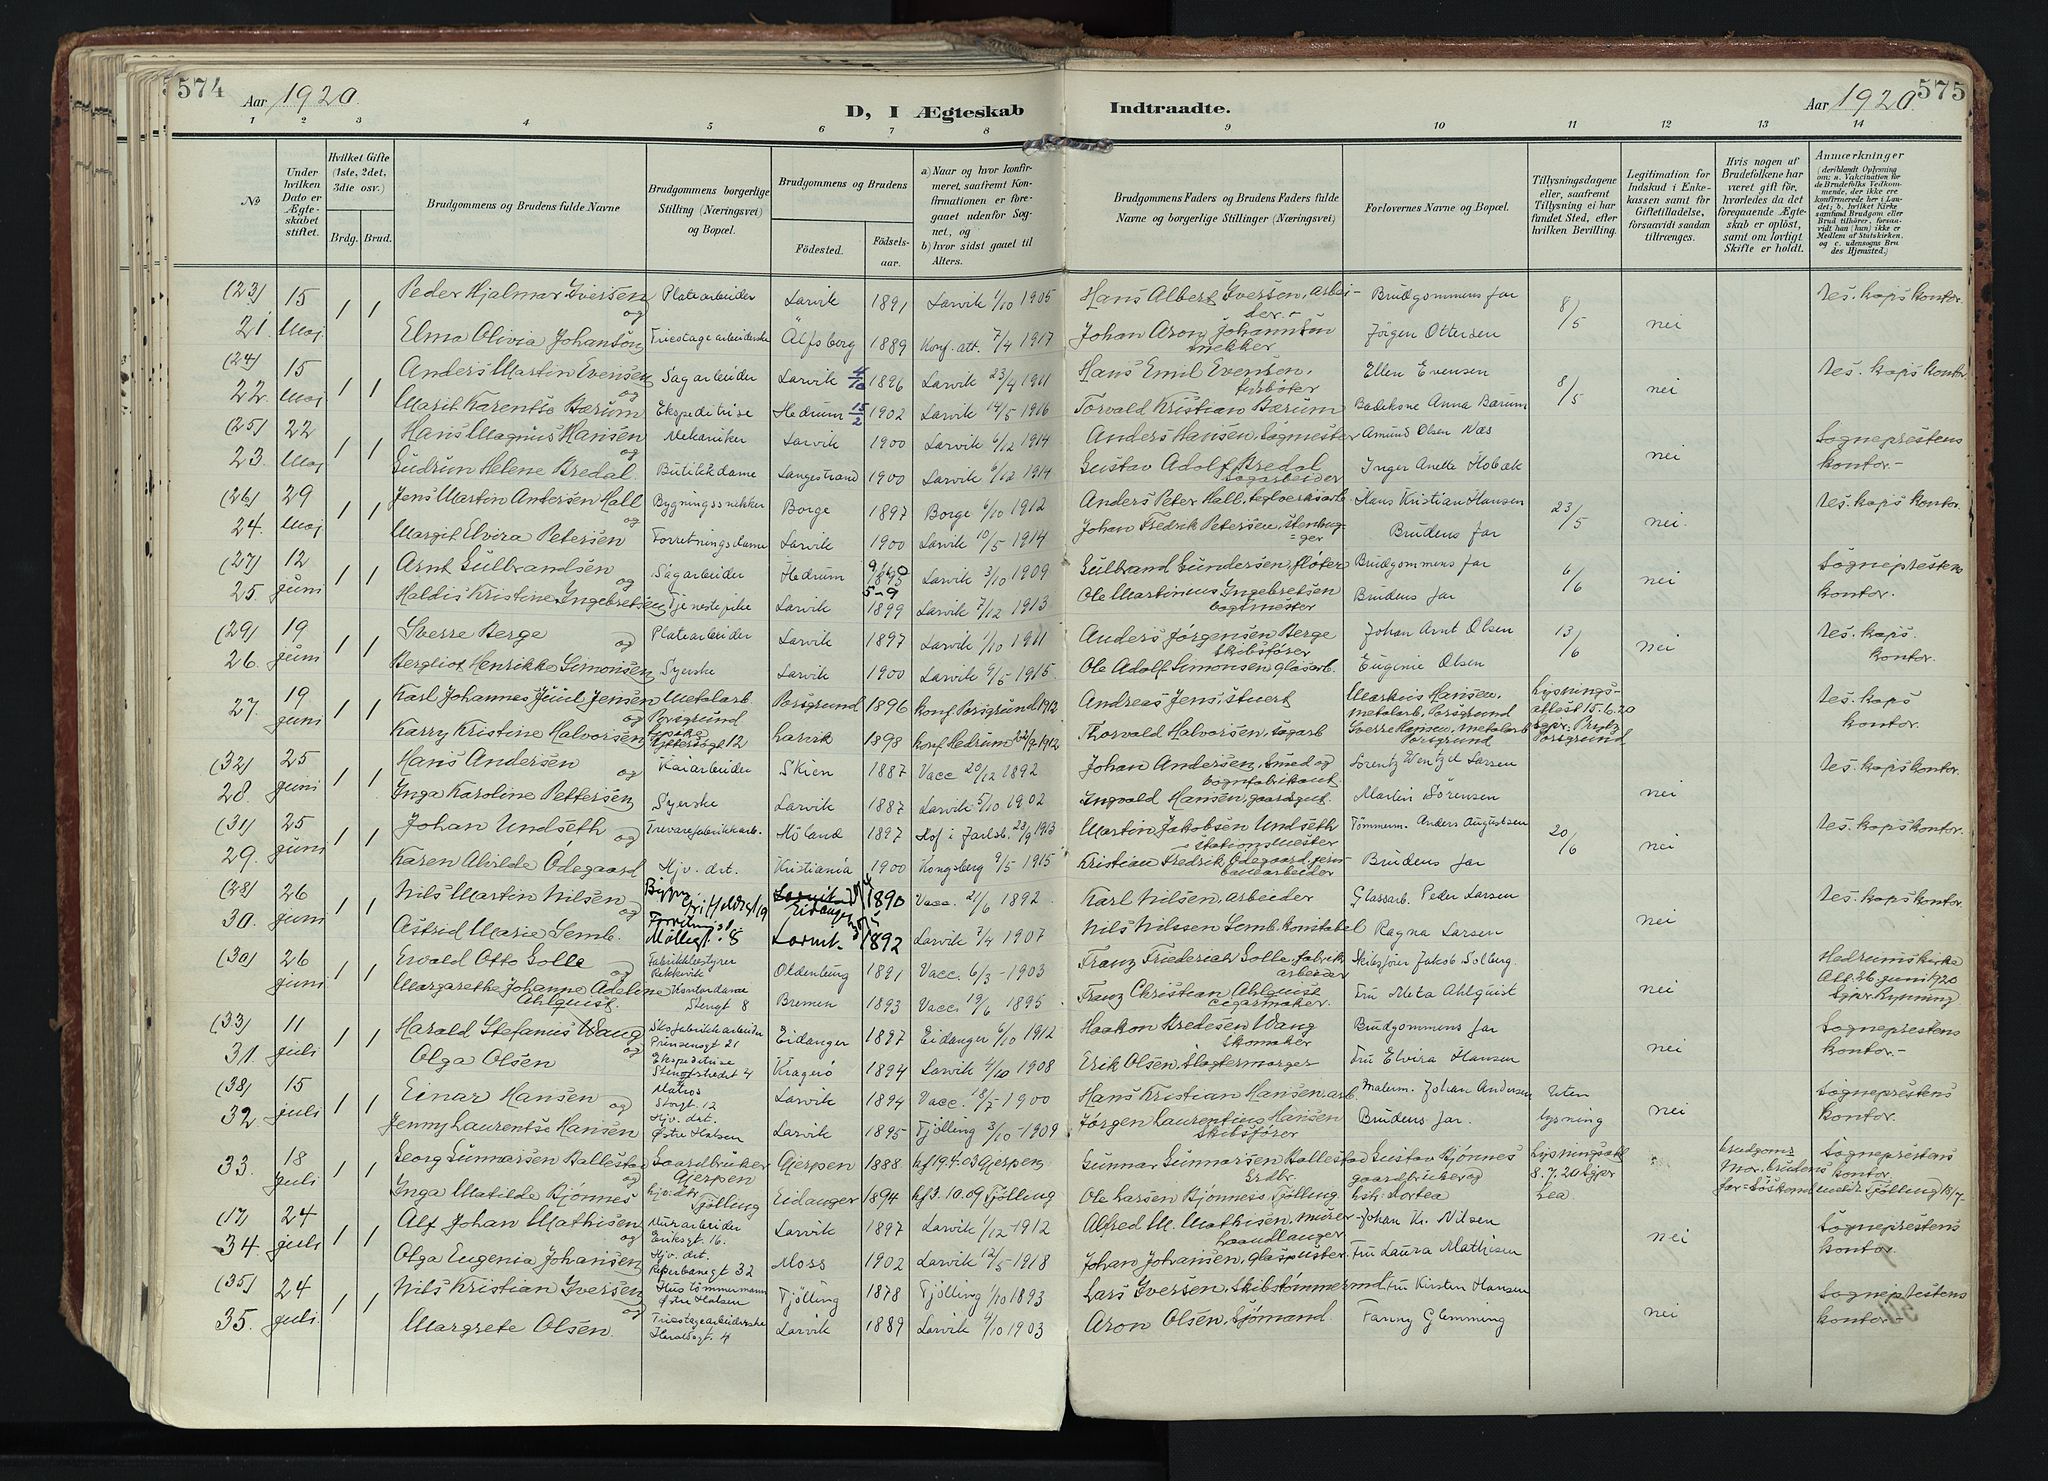 574
Aar 1920.
D, I Ægteskab
Indtraadte.
Aar 1920.
575
1 2 3 4 5 6 7 8 9 10 11 12 13 14
No
Under hvilken Dato er Ægteskabet stiftet.
Hvilket Gifte (1ste, 2det, 3die osv.)
Brdg. Brud.
Brudgommens og Brudens fulde Navne
Brudgommens borgerlige Stilling (Næringsvei) og Bopæl.
Brudgommens og Brudens
Fødested. Fødselsaar.
a) Naar og hvor konfirmeret, saafremt Konfirmationen er foregaaet udenfor Sognet, og
b) hvor sidst gaaet til Alters.
Brudgommens Faders og Brudens Faders fulde Navne og borgerlige Stillinger (Næringsvei)
Forlovernes Navne og Bopæl.
Tillysningsdagene eller, saafremt Tillysning ei har fundet Sted, efter hvilken Bevilling.
Legitimation for Indskud i Enkekassen samt for Giftetilladelse, forsaavidt saadan tiltrænges.
Hvis nogen af Brudefolkene har været gift før, hvorledes da det foregaaende Ægteskab er opløst, samt om lovligt Skifte er holdt.
Anmærkninger
(23) 15 1 1 Peder Hjalmar Iversen Platearbeider Larvik 1891 Larvik 1/10 1905 Hans Albert Iversen, arbeider Brudgommens far 8/5 nei res. kaps kontor.
21. Maj og Elma Olivia Johanson Triestagearbeiderske Älfsborg 1889 Konf. att. 7/4 1917 Johan Aron Johannson snekker Jörgen Ottersen
(24) 15 1 1 Anders Martin Evensen Sagarbeider Larvik 4/10 1896 Larvik 23/4 1911 Hans Emil Evensen, fyrbøter Ellen Evensen 8/5 nei res. kaps kontor
22. Maj og Marit Karentse Bærum Ekspeditrise Hedrum 15/2 1902 Larvik 14/5 1916 Torvald Kristian Bærum Badekone Anna Bærum
(25) 22 1 1 Hans Magnus Hansen Mekaniker Larvik 1900 Larvik 6/12 1914 Anders Hansen, Sagmester Amund Olsen Næs nei Sogneprestens kontor.
23. Maj og Gudrun Helene Bredal. Butikkdame Langestrand 1900 Larvik 6/12 1914 Gustav Adolf Bredal Sagarbeider Inger Anette Hobæk
(26) 29 1 1 Jens Martin Andersen Hall Bygningssnekker Borge 1897 Borge 6/10 1912 Anders Peter Hall, teglverksarb. Hans Kristian Hansen 23/5 nei. res. kaps kontor.
24. Maj og Margit Elvira Petersen Forretningsdame Larvik 1900 Larvik 10/5 1914 Johan Fredrik Petersen, stenhugger Brudens far
(27) 12 1 1 Arnt Gulbrandsen Sagarbeider Hedrum 1895 Larvik 3/10 1909 Gulbrand Gundersen, fløter Brudgommens far 6/6 nei Sogneprestens kontor.
25. juni og Haldis Kristine Ingebretsen Tjenestepike Larvik 5-9 1899 Larvik 7/12 1913 Ole Martinius Ingebretsen bogtmester Brudens far
(29) 19 1 1 Sverre Berge Platearbeider Larvik 1897 Larvik 1/10 1911 Anders Jørgensen Berge Skibsfører Johan Arnt Olsen 13/6 nei res. kaps. kontor.
26. juni og Bergliot Henrikke Simonsen Syerske Larvik 1900 Larvik 9/5 1915. Ole Adolf Simonsen, glasarb. Eugenie Olsen
27. 19 juni 1 1 Karl Johannes Juul Jensen Metalarb. Porsgrund Porsgrund 1896 konf Porsgrund 1912 Andreas Jens, stuert Markus Hansen, metalarb. Porsgrund Lysningsattest 15.6.20 res. kaps kontor.
og Karry Kristine Halvorsen 12 Larvik 1898 konf Hedrum 22/9 1912 Thorvald Halvorsen, sagarb Sverre Hansen, metalarb Porsgrund sgpr. Porsgrund
(32) 25 1 1 Hans Andersen Kaiarbeider Skien 1887 Vacc 20/12 1892 Johan Andersen, smed og vognfabrikant Sorentz Wentzel Larsen nei res. kaps kontor.
28. juni og Inga Karoline Pettersen Syerske Larvik 1887 Larvik 5/10 1902 Ingvald Hansen, gaardsgut. Martin Sörensen
(31) 25 1 1 Johan Undseth Trevarefabrikkarb. Höland 1897 Hof i Jarlsb. 28/9 1913 Martin Jakobsen Undseth stationsmester Tömmerm. Anders Augustsen 20/6 nei res. kaps kontor.
29. juni og Karen Alvilde Ödegaard Hjv. dat. Kristiania 1900 Kongsberg 9/5 1915 Kristian Fredrik Ödegaard, jernbanearbeider Brudens far
(28) 26 1 1 Nils Martin Nilsen Eidanger 1890 Vacc. 21/6 1892 Karl Nilsen, arbeider Glassarb. Peder Larsen nei res. kaps kontor.
30. juni og Astrid Marie Semb. Möllegt. 8 Larvik 1892 Larvik 7/4 1907 Nils Nilssen Semb, konstabel Ragna Larsen
(30) 26 juni 1 1 Ewald Otto Golle Fabrikkbestyrer Rekkevik Oldenburg 1891 Vacc. 6/3-1903 Franz Friederich Golle, fabrikarbeider Skibsfører Jakob Solberg. nei Hedrumskirke Att. 26 juni 1920
og Margarethe Johanne Adeline Ahlquist. Kontordame Stengt 8 Bremen 1893 Vacc 19/6 1895 Franz Christian Ahlquist cigarmaker. Fru Meta Ahlquist
(33) 11 1 1 Harald Stefanus Wang Skofabrikkarbeider Prinsensgt 21 Eidanger 1897 Eidanger 6/10 1912 Haakon Bredesen Wang Skomaker Brudgommens far nei Sogneprestens kontor.
31. juli og Olga Olsen Ekspeditrise Kragerö 1894 Larvik 4/10 1908 Erik Olsen, Slagtermarger Fru Elvira Hansen
(38) 15 1 1 Einar Hansen Matros Storgt. 12 Larvik 1894 Vacc. 18/7-1900 Hans Kristian Hansen, arb. Malerm. Johan Andersen Uten lysning nei Sogneprestens kontor.
32 juli og Jenny Laurentse Hansen Hjv. dat. Østre Halsen Larvik 1895 Tjölling 3/10-1909 Jørgen Laurentius Hansen Skibsfører Brudens far.
33. 18 juli 1 1 Georg Gunnarsen Ballestad Gaardbruker Gjerpen Gjerpen 1888 kf 19.4.03 Gjerpen Gunnar Gunnarsen Ballestad Grdbr. Gustav Bjønnes gaardbruker og Lysningsatt 8.7.20 Sgpr Lea " brudgoms Mor, brudens far = Søskend Sogneprestens kontor
og Inga Matilde Bjønnes hjv. dtr. Tjölling Eidanger 1894 kf 3.10.09 Tjölling Ole Larsen Bjønnes, Tjölling
(17) 24 1 1 Alf Johan Mathisen Murarbeider Eriksgt. 16. Larvik 1897 Larvik 1/12-1912 Alfred M. Mathisen, murerhaandlanger Johan Kr. Nilsen nei Sogneprestens kontor
34. juli og Olga Eugenia Johansen Hjv. dat. Reperbanegt 32 Moss 1902 Larvik 12/5-1918 Johan Johansen, glaspuster. Fru Laura Mathisen
(35) 24 1 1 Nils Kristian Iversen Hus tömmermann Østre Halsen Tjölling 1878 Tjölling 1/10 1893 Lars Iversen, Skibstømmermd Fru Kirsten Hansen nei Sogneprestens kontor.
35. juli og Margrete Olsen Triestagearbeiderske Haraldsgt. 4 Larvik 1889 Larvik 4/10 1903 Aron Olsen, Sjømand. Fanny Glemming